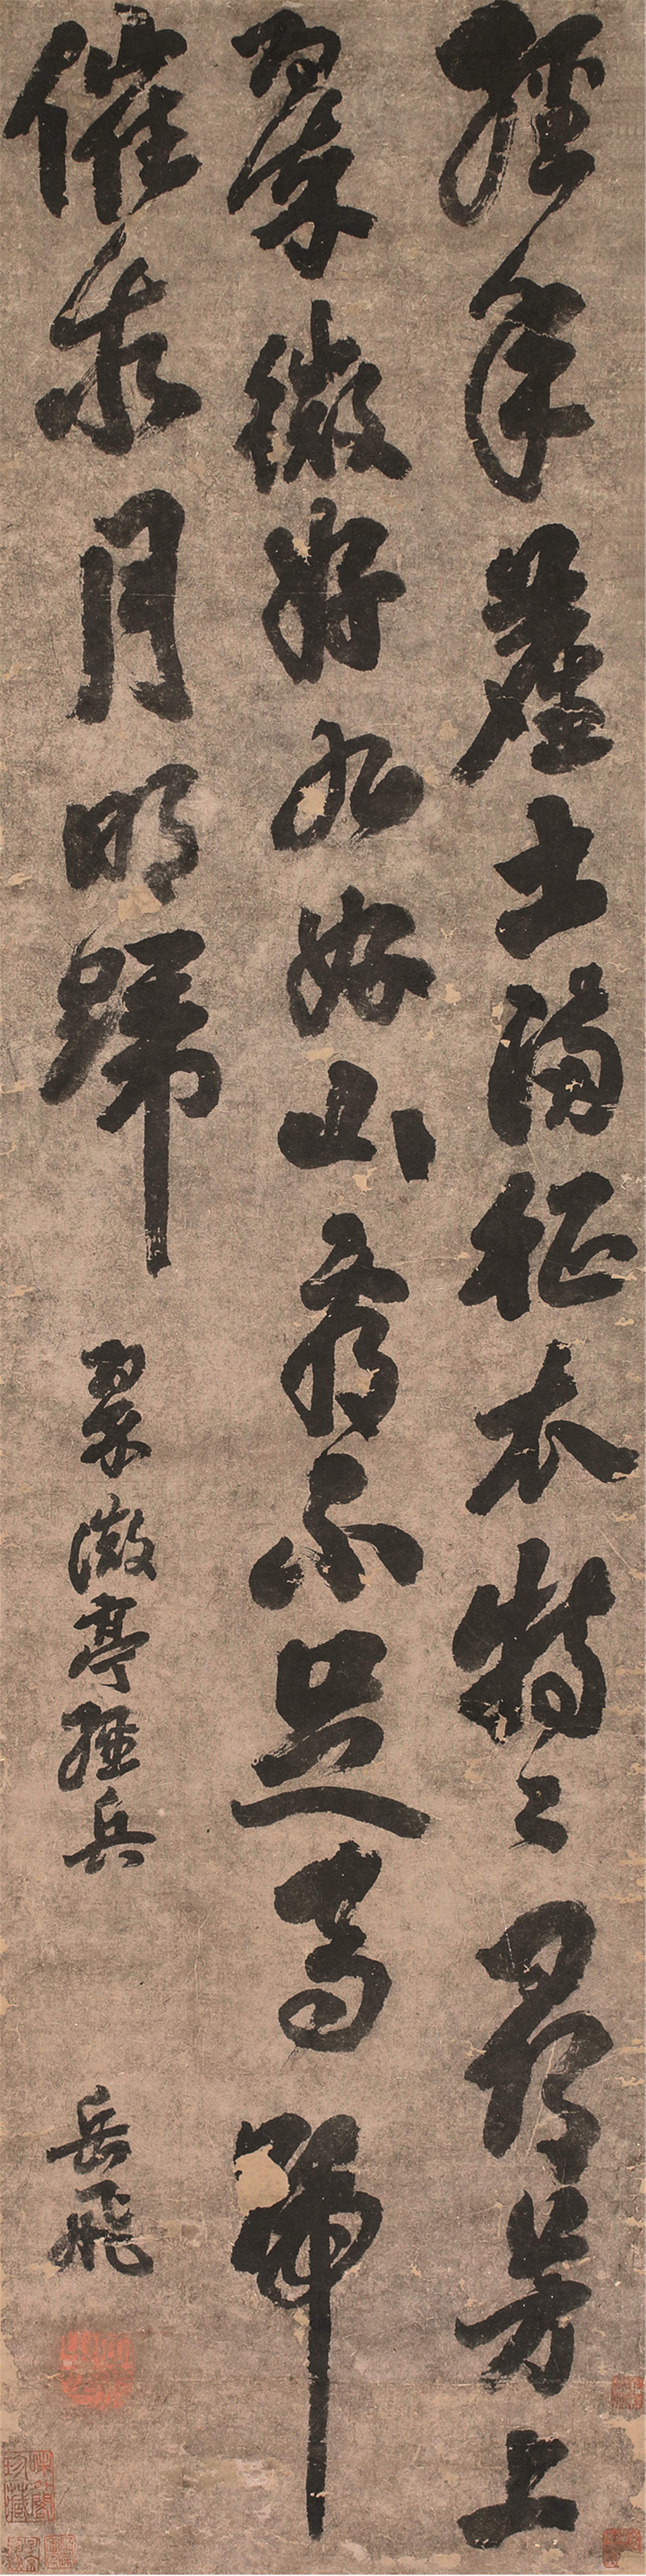 經年塵土滿征衣特〻尋芳上
翠微好水好山看不足馬蹄
催月明歸 翠微亭經兵 岳飛